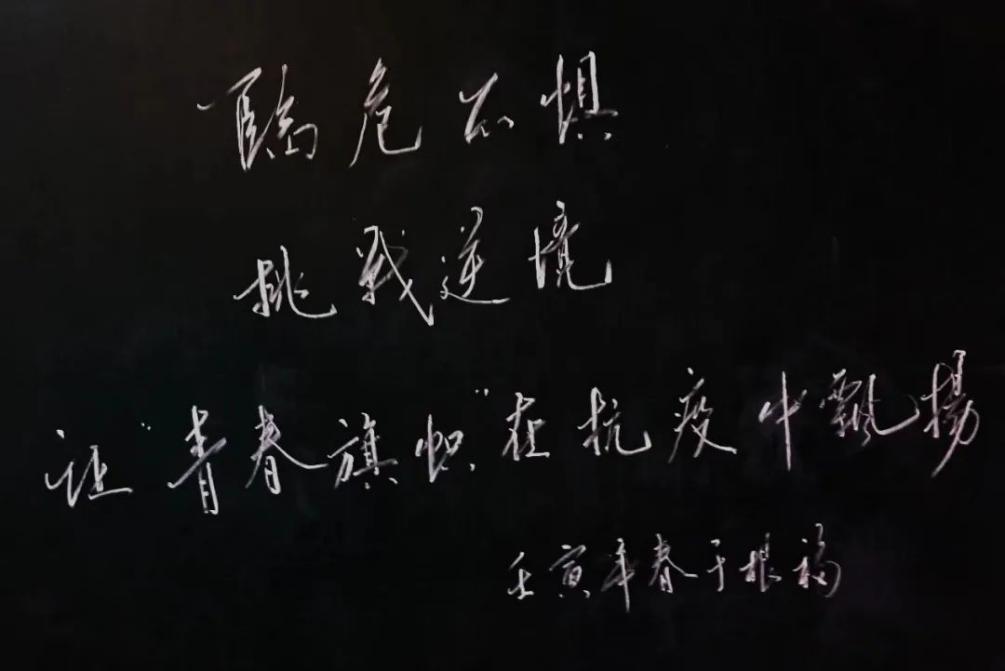 臨危不惧
挑戰逆境
让"青春旗帜"在抗疫中飘揚
壬寅年春于根福